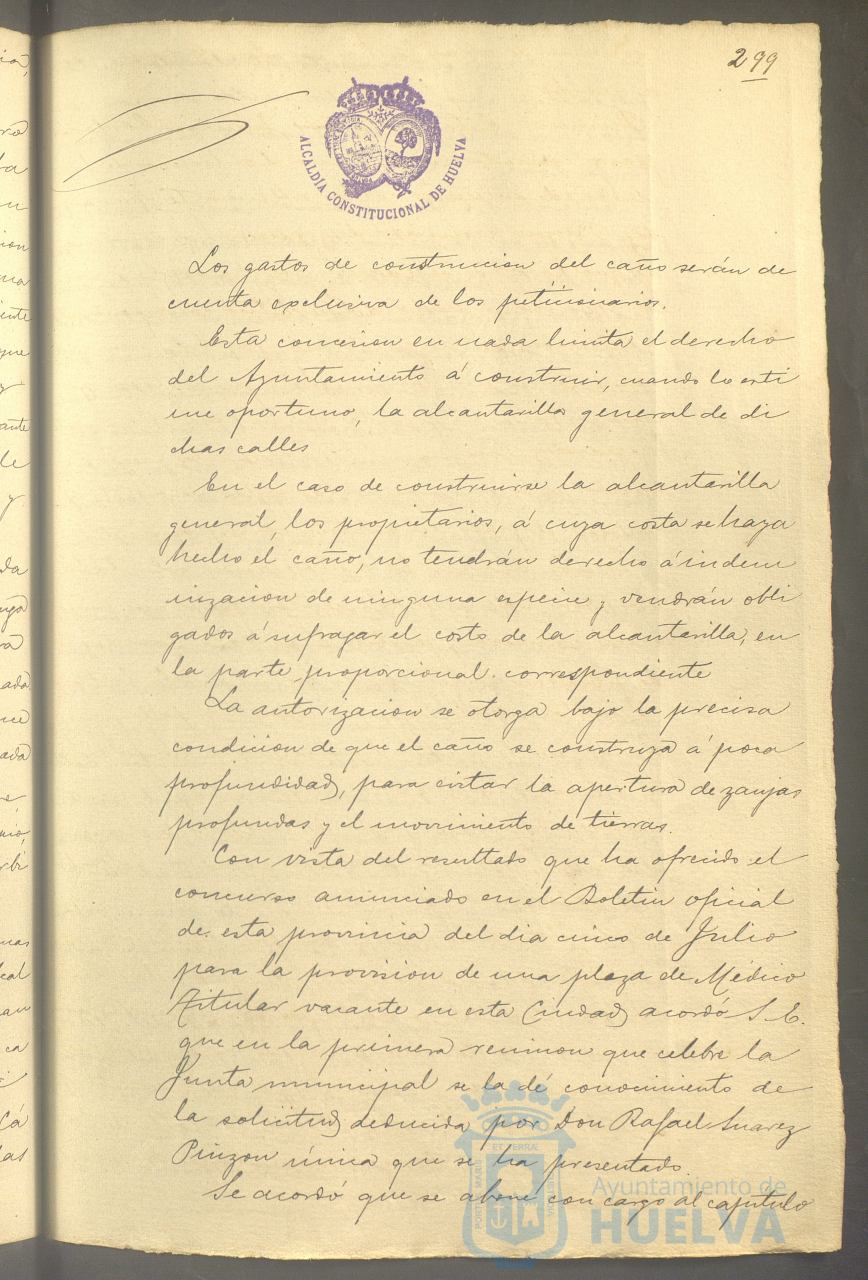 299
ALCALDÍA CONSTITUCIONAL DE HUELVA
Los gastos de construccion del caño serán de
cuenta exclusiva de los peticionarios.
Esta concesion en nada limita el derecho
del Ayuntamiento á construir, cuando lo esti
me oportuno, la alcantarilla general de di
chas calles
En el caso de construirse la alcantarilla
general, los propietarios, á cuya costa se haya
hecho el caño, no tendrán derecho á indem
nizacion de ninguna especie y vendrán obli
gados á sufragar el costo de la alcantarilla, en
la parte proporcional correspondiente
La autorizacion se otorga bajo la precisa
condicion de que el caño se construya á poca
profundidad, para evitar la apertura de zanjas
profundas y el movimiento de tierras.
Con vista del resultado que ha ofrecido el
concurso anunciado en el Boletin oficial
de esta provincia del dia cinco de Julio
para la provision de una plaza de Médico
Titular vacante en esta Ciudad acordó S. E.
que en la primera reunion que celebre la
Junta municipal se la dé conocimiento de
la solicitud deducida por Don Rafael Suarez
Pinzon única que se ha presentado.
Se acordó que se abone con cargo al capitulo
Ayuntamiento de
HUELVA